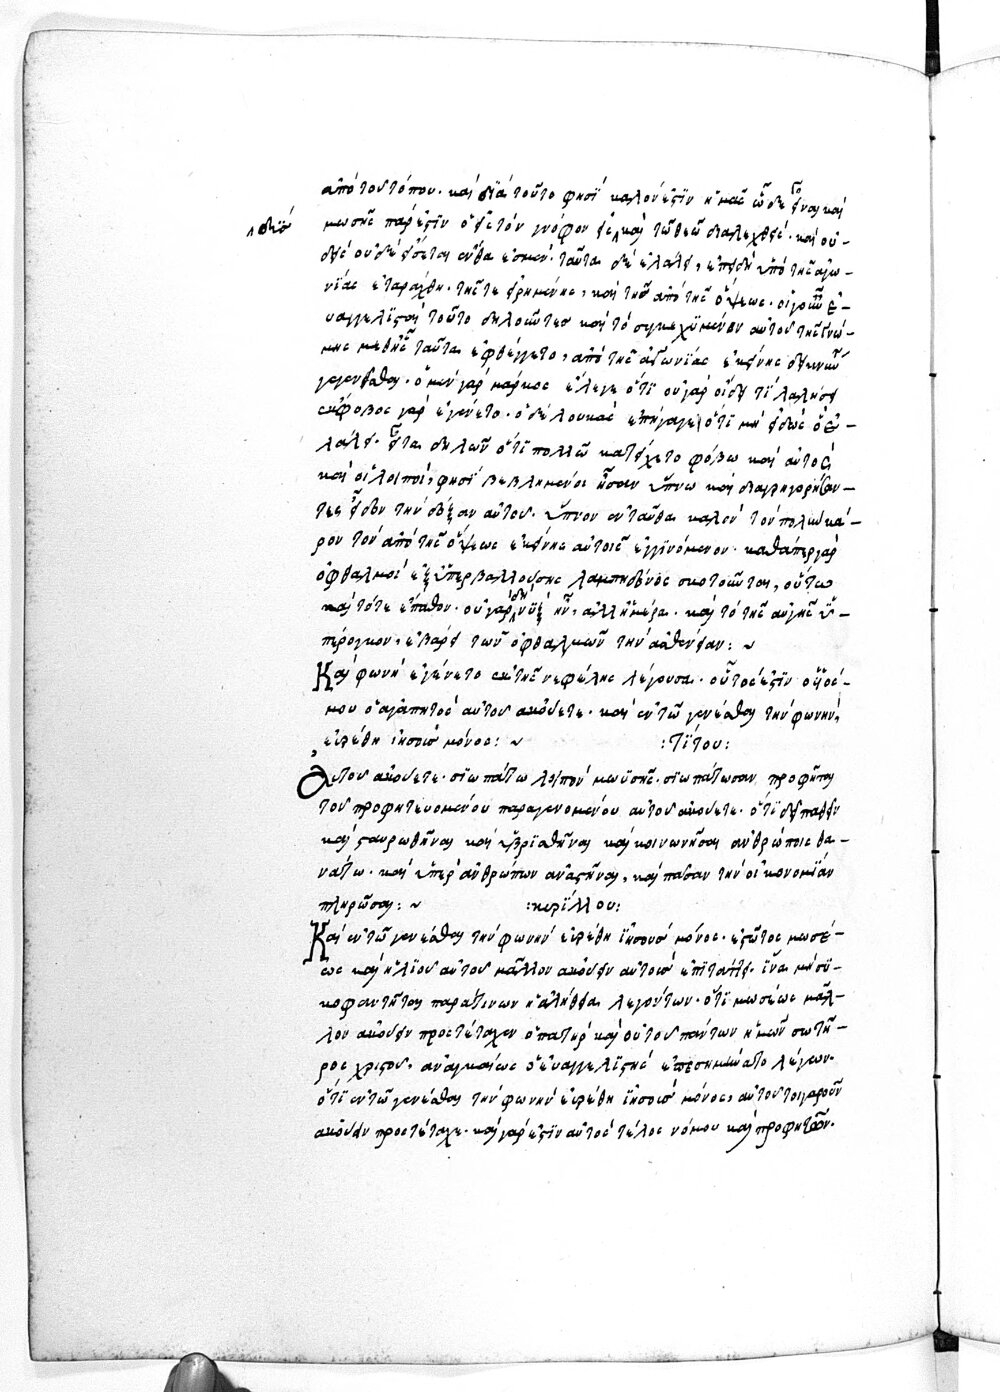 ἀπὸ τοῦ τόπου. καὶ διὰ τοῦτο φησὶ καλὸν ἐστὶν ἡμᾶς ὧδε εἶναι καὶ
μωσῆς πάρεστιν ὁ εἰς τὸν γνόφον εἰσ καὶ τῶ θεῶ διαλεχθείς. καὶ οὐ-
^ δὺς
δεὶς οὐδὲ εἴσεται ἔνθα ἐσμέν. ταῦτα δὲ ἐλάλει, ἐπειδὴ ὑπὸ τῆς ἀγω-
νίας ἐταράχθη. τῆς τε εἰρημένης, καὶ τῆς ἀπὸ τῆς ὄψεως. οἱ γοῦν εὐ-
αγγελισταὶ τοῦτο δηλοῦντες καὶ τὸ συγκεχυμένον αὐτοῦ τῆς γνώ-
μης μεθ' ἧς ταῦτα ἐφθέγγετο, ἀπὸ τῆς ἀγωνίας ἐκείνης δεικνῦν
γεγενῆσθαι. ὁ μὲν γὰρ μάρκος ἔλεγε ὅτι οὐ γὰρ οἶδε τί λαλήσει
ἔκφοβος γὰρ ἐγένετο. ὁ δὲ λουκᾶς ἐπήγαγε ὅτι μὴ εἰδὼς ὃ ἐ-
λάλει. εἶτα δηλῶν ὅτι πολλῶ κατείχετο φόβω καὶ αὐτὸς
καὶ οἱ λοιποί, φησὶ βεβλημένοι ἦσαν ὕπνω καὶ διαγρηγορήσαν-
τες εἶδον τὴν δόξαν αὐτοῦ. ὕπνον ἐνταῦθα καλῶν τὸν πολὺν κά-
ρον τὸν ἀπὸ τῆς ὄψεως ἐκείνης αὐτοῖς ἐγγινόμενον. καθάπερ γὰρ
ὀφθαλμοὶ ἐξ ὑπερβαλλούσης λαμπηδόνος σκοτοῦνται, οὕτω
καὶ τότε ἔπαθον. οὐ γὰρ δὴ νὺξ ἦν, ἀλλ' ἡμέρα. καὶ τὸ τῆς αὐγῆς ὑ-
πέρογκον, ἐβάρει τῶν ὀφθαλμῶν τὴν ἀσθένειαν: ~
Καὶ φωνὴ ἐγένετο ἐκ τῆς νεφέλης λέγουσα. οὗτος ἐστὶν ὁ υἱός
μου ὁ ἀγαπητὸς αὐτοῦ ἀκούετε. καὶ ἐν τῶ γενέσθαι τὴν φωνήν,
εὑρέθη ἰησοῦς μόνος: ~ :Τίτου:
Αὐτοῦ ἀκούετε. σιωπάτω λοιπὸν μωϋσῆς. σιωπάτωσαν προφῆται
τοῦ προφητευομένου παραγενομένου αὐτοῦ ἀκούετε. ὅτι δεῖ παθεῖν
καὶ σταυρωθῆναι καὶ ὑβρισθῆναι καὶ κοινωνῆσαι ἀνθρώποις θα-
νάτω. καὶ ὑπὲρ ἀνθρώπων ἀναστῆναι, καὶ πᾶσαν τὴν οἰκονομίαν
πληρῶσαι: ~ :κυρίλλου:
Καὶ ἐν τῶ γενέσθαι τὴν φωνὴν εὑρέθη ἰησοῦς μόνος. ἐστῶτος μωσέ-
ως καὶ ἠλίου αὐτοῦ μᾶλλον ἀκούειν αὐτοῖς ἐπιτάττει. ἵνα μὴ συ-
κοφαντῆται παρά τινων ἡ ἀλήθεια λεγόντων. ὅτι μωσέως μᾶλ-
λον ἀκούειν προστέταχεν ὁ πατὴρ καὶ οὐ τοῦ πάντων ἡμῶν σωτῆ-
ρος χριστοῦ, ἀναγκαίως ὁ εὐαγγελιστὴς ἐπεσημήνατο λέγων.
ὅτι ἐν τῶ γενέσθαι τὴν φωνὴν εὑρέθη ἰησοῦς μόνος, αὐτοῦ τοιγαροῦν
ἀκούειν προστέταχε. καὶ γάρ ἐστιν αὐτὸς τέλος νόμου καὶ προφητῶν.